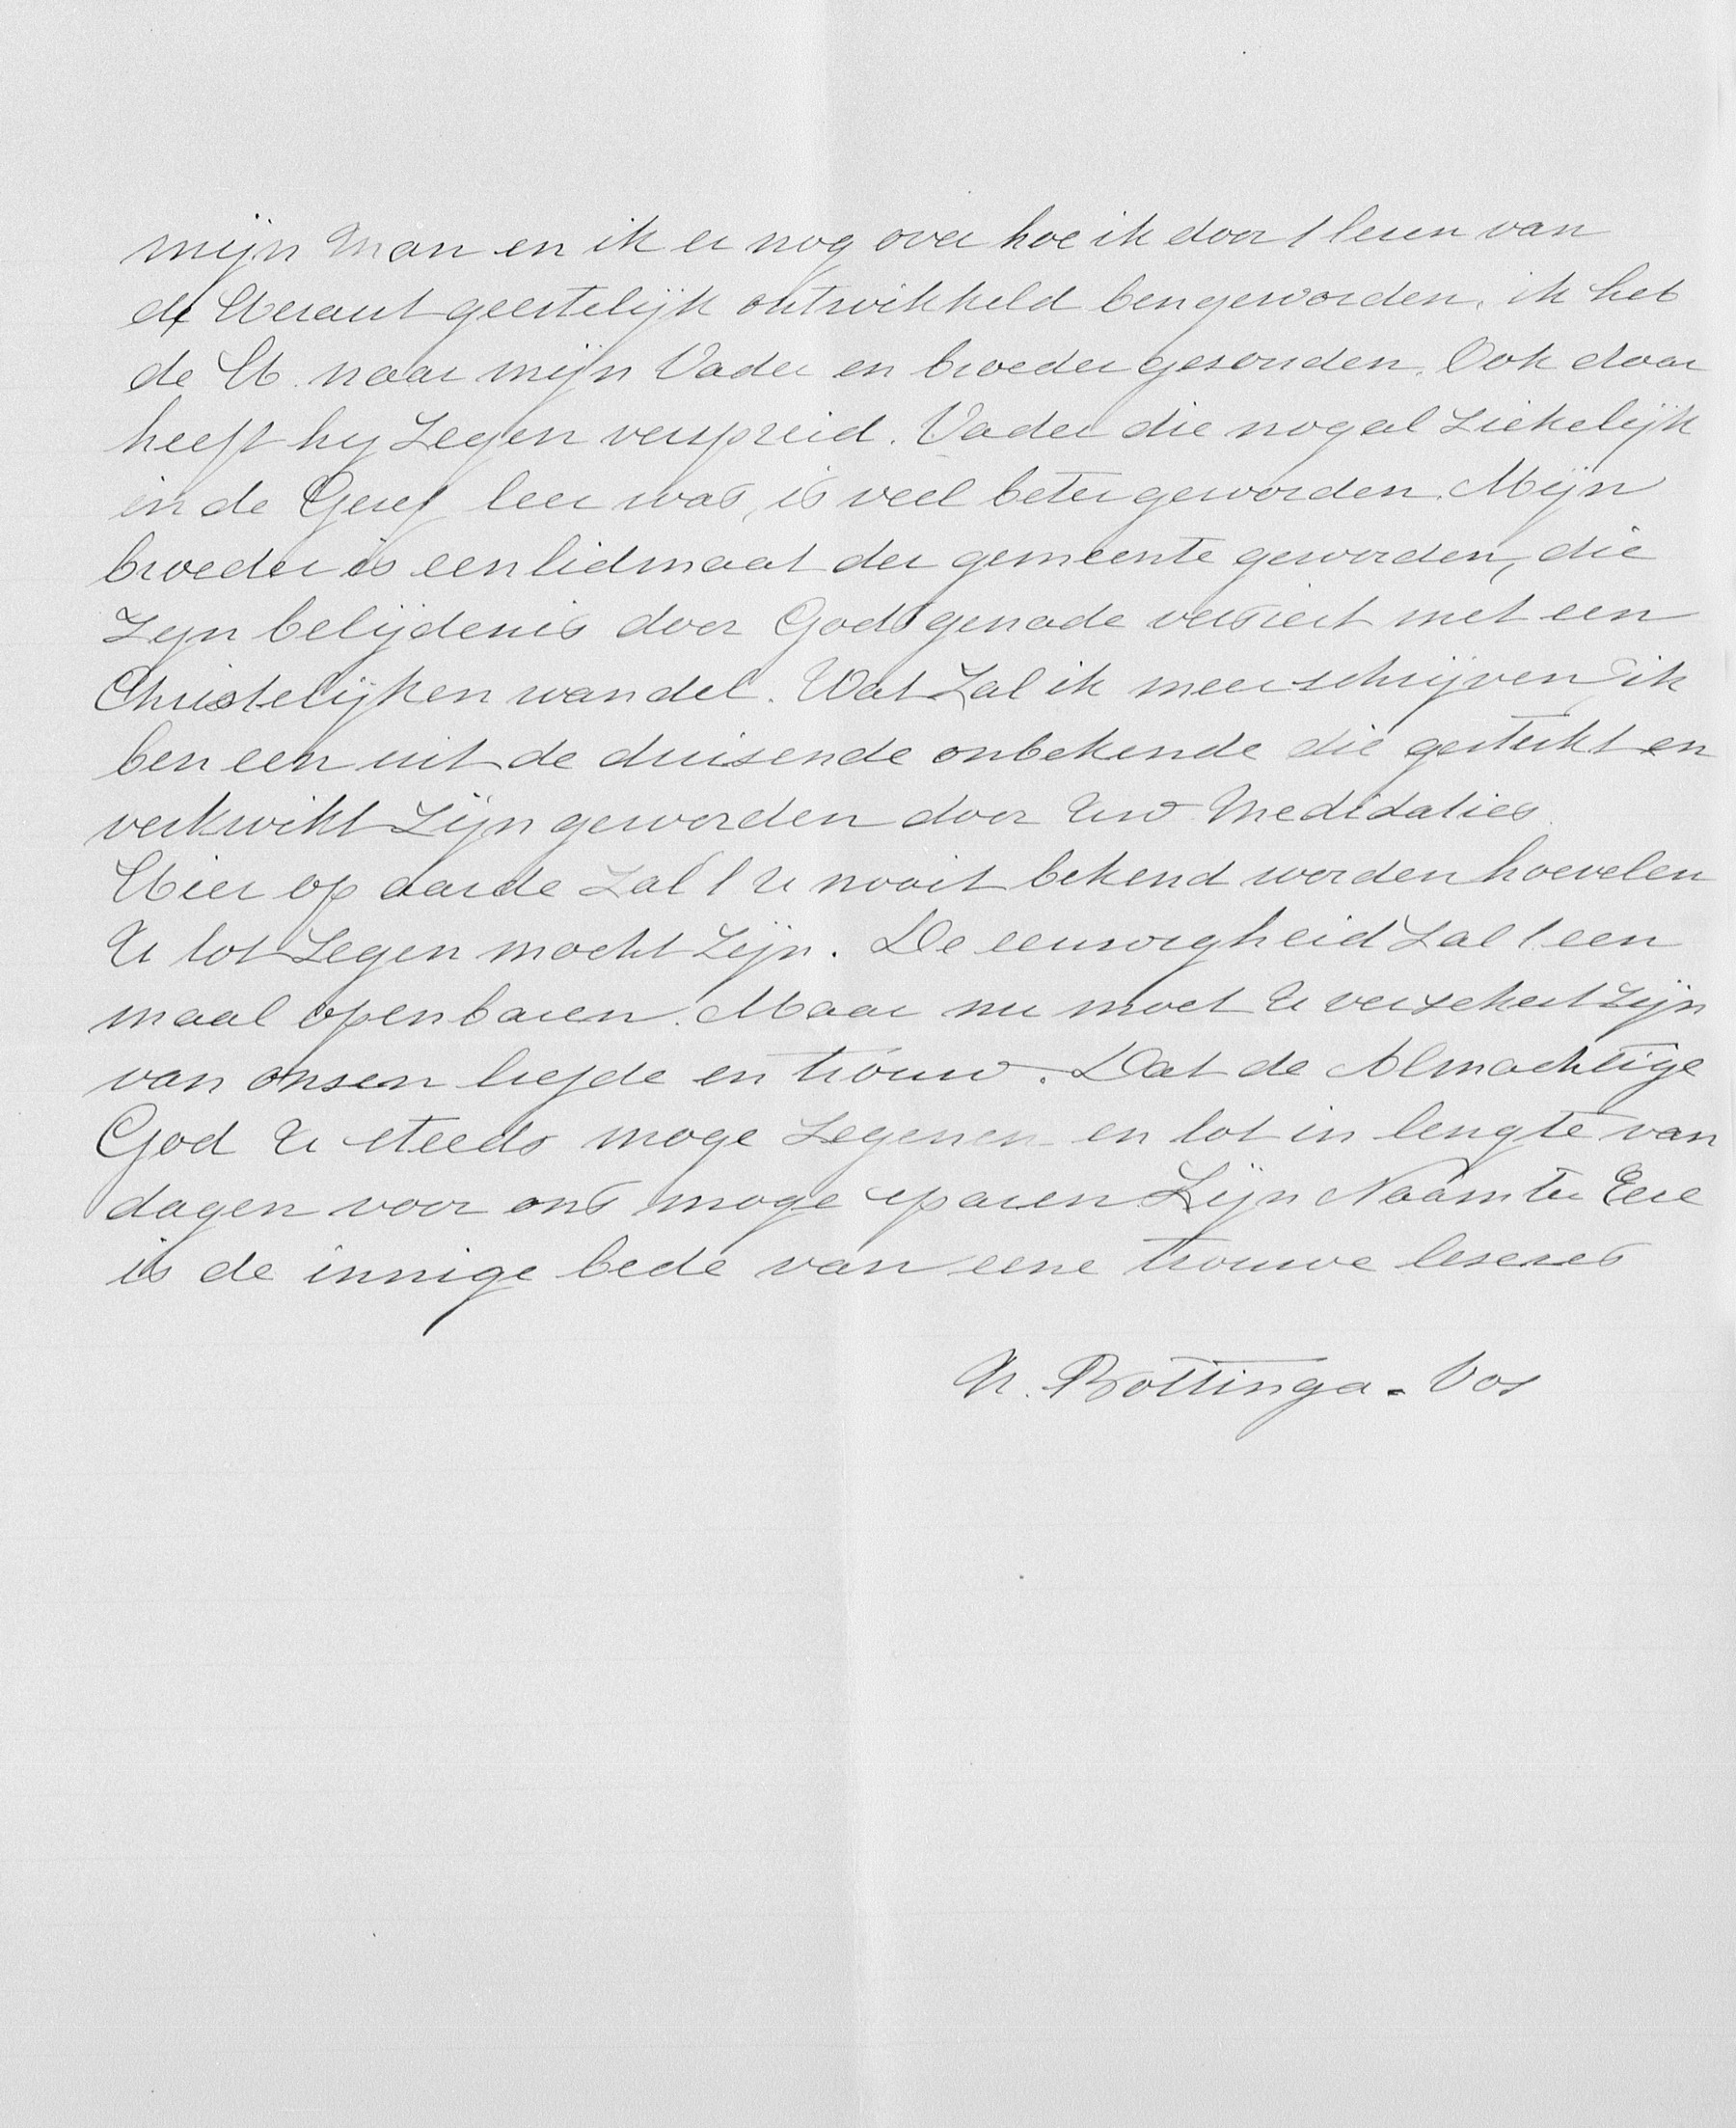 mijn Man en ik er nog over hoe ik door 't lesen van
de Heraut geestelijk ontwikkeld ben geworden. ik heb
de H. naar mijn Vader en broeder gesonden. Ook daar
heeft hij Zegen verspreid. Vader die nogal Ziekelijk
in de Geref leer was, is veel beter geworden. Mijn
broeder is een lidmaat der gemeente geworden, die
Zijn belijdenis door Gods genade versiert met een
Christelijken wandel. Wat Zal ik meer schrijven ik
ben een uit de duisende onbekende die gesterkt en
verkwikt Zijn geworden door Uw Medidaties
Hier op aarde Zal 't U nooit bekend worden hoevelen
U tot Zegen mocht Zijn. De eeuwigheid Zal 't een
maal openbaren. Maar nu moet U versekert Zijn
van onsen liefde en trouw. Dat de Almachtige
God U steeds moge Zegenen en tot in lengte van
dagen voor ons moge sparen Zijn Naam ter Eere
is de innige bede van eene trouwe leseres
Bottinga - Vos